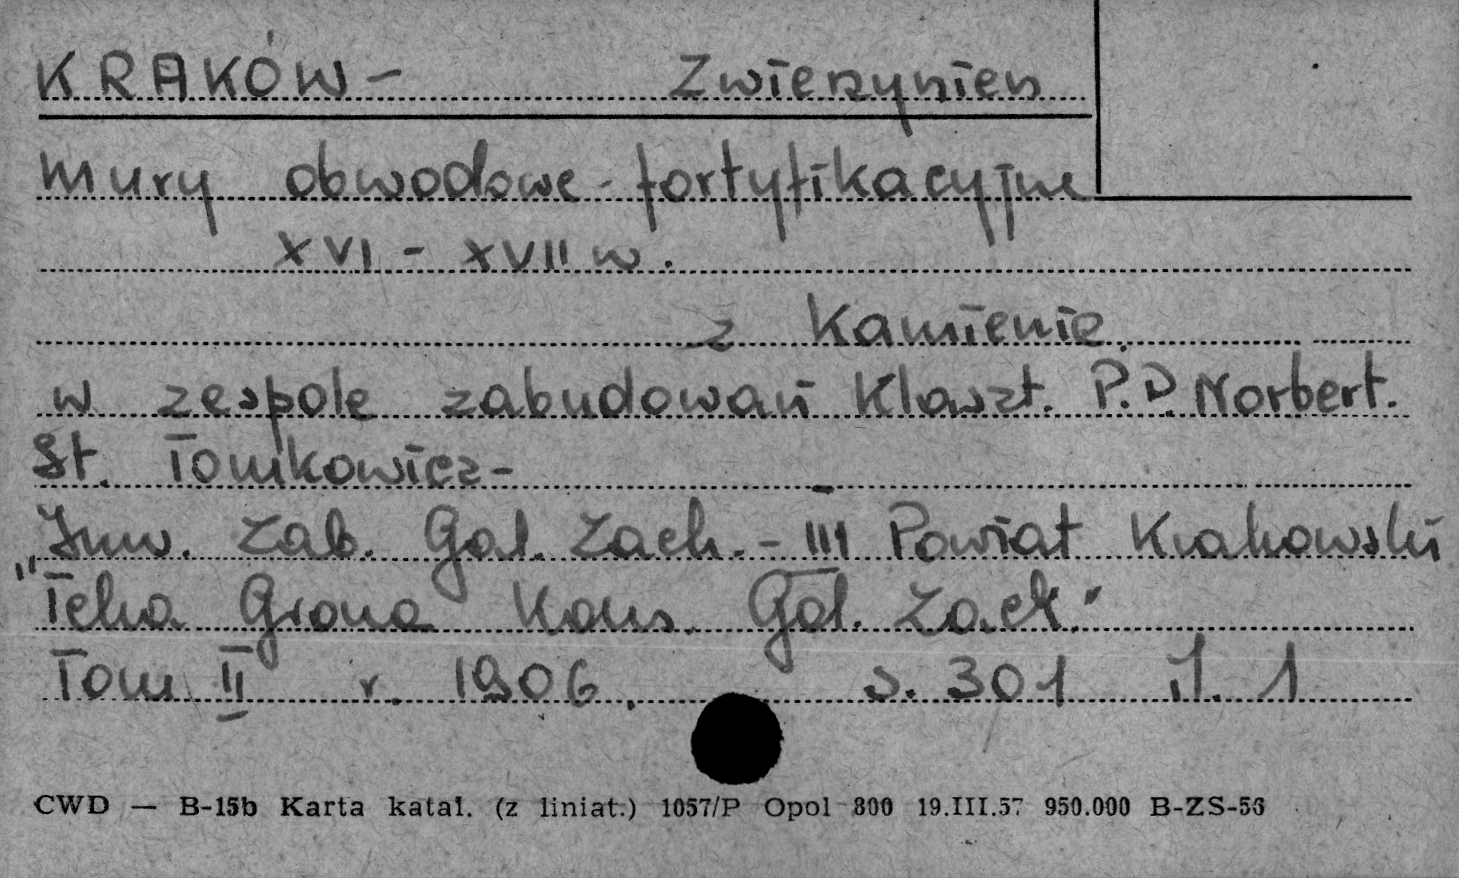 KRAKÓW - Zwierzyniec
mury obwodowe - fortyfikacyjne
XVI - XVII w.
z Kamienie.
w zespole zabudowań Klaszt. P.P. Norbert.
St. Tomkowicz -
Inw. Zab. Gal. Zach. - III Powiat Krakowski
"Teka Grona Kons. Gal. Zach."
Tom II r. 1906. s. 301 il. 1
CWD — B-15b Karta katal. (z liniat.) 1057/P Opol 800 19.III.57 950.000 B-ZS-56